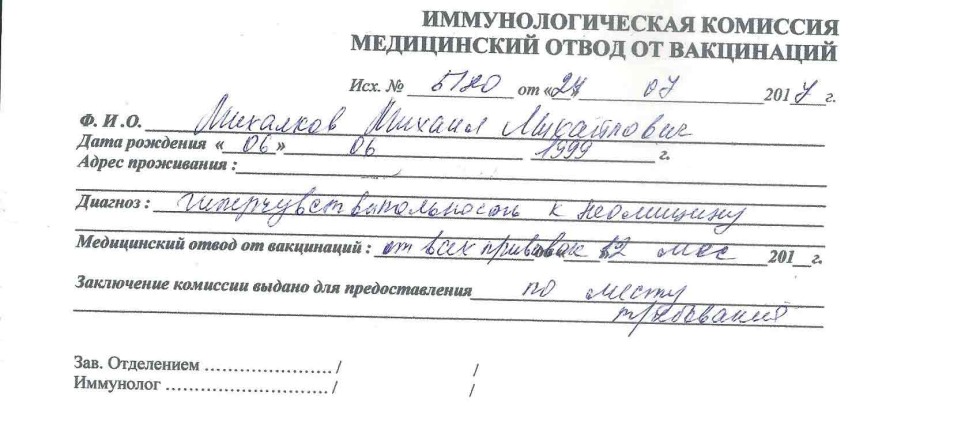 ИММУНОЛОГИЧЕСКАЯ КОМИССИЯ
МЕДИЦИНСКИЙ ОТВОД ОТ ВАКЦИНАЦИЙ
Исх. № 5120 от «27» 07 2017 г.
Ф. И .О. Михалков Михаил Михайлович
Дата рождения «06» 06 1999 г.
Адрес проживания :
Диагноз : гиперчувствительность к неомицину
Медицинский отвод от вакцинаций : от всех прививок 12 мес 201 г.
Заключение комиссии выдано для предоставления по месту
требований
Зав. Отделением ………………… / /
Иммунолог …………………… / /